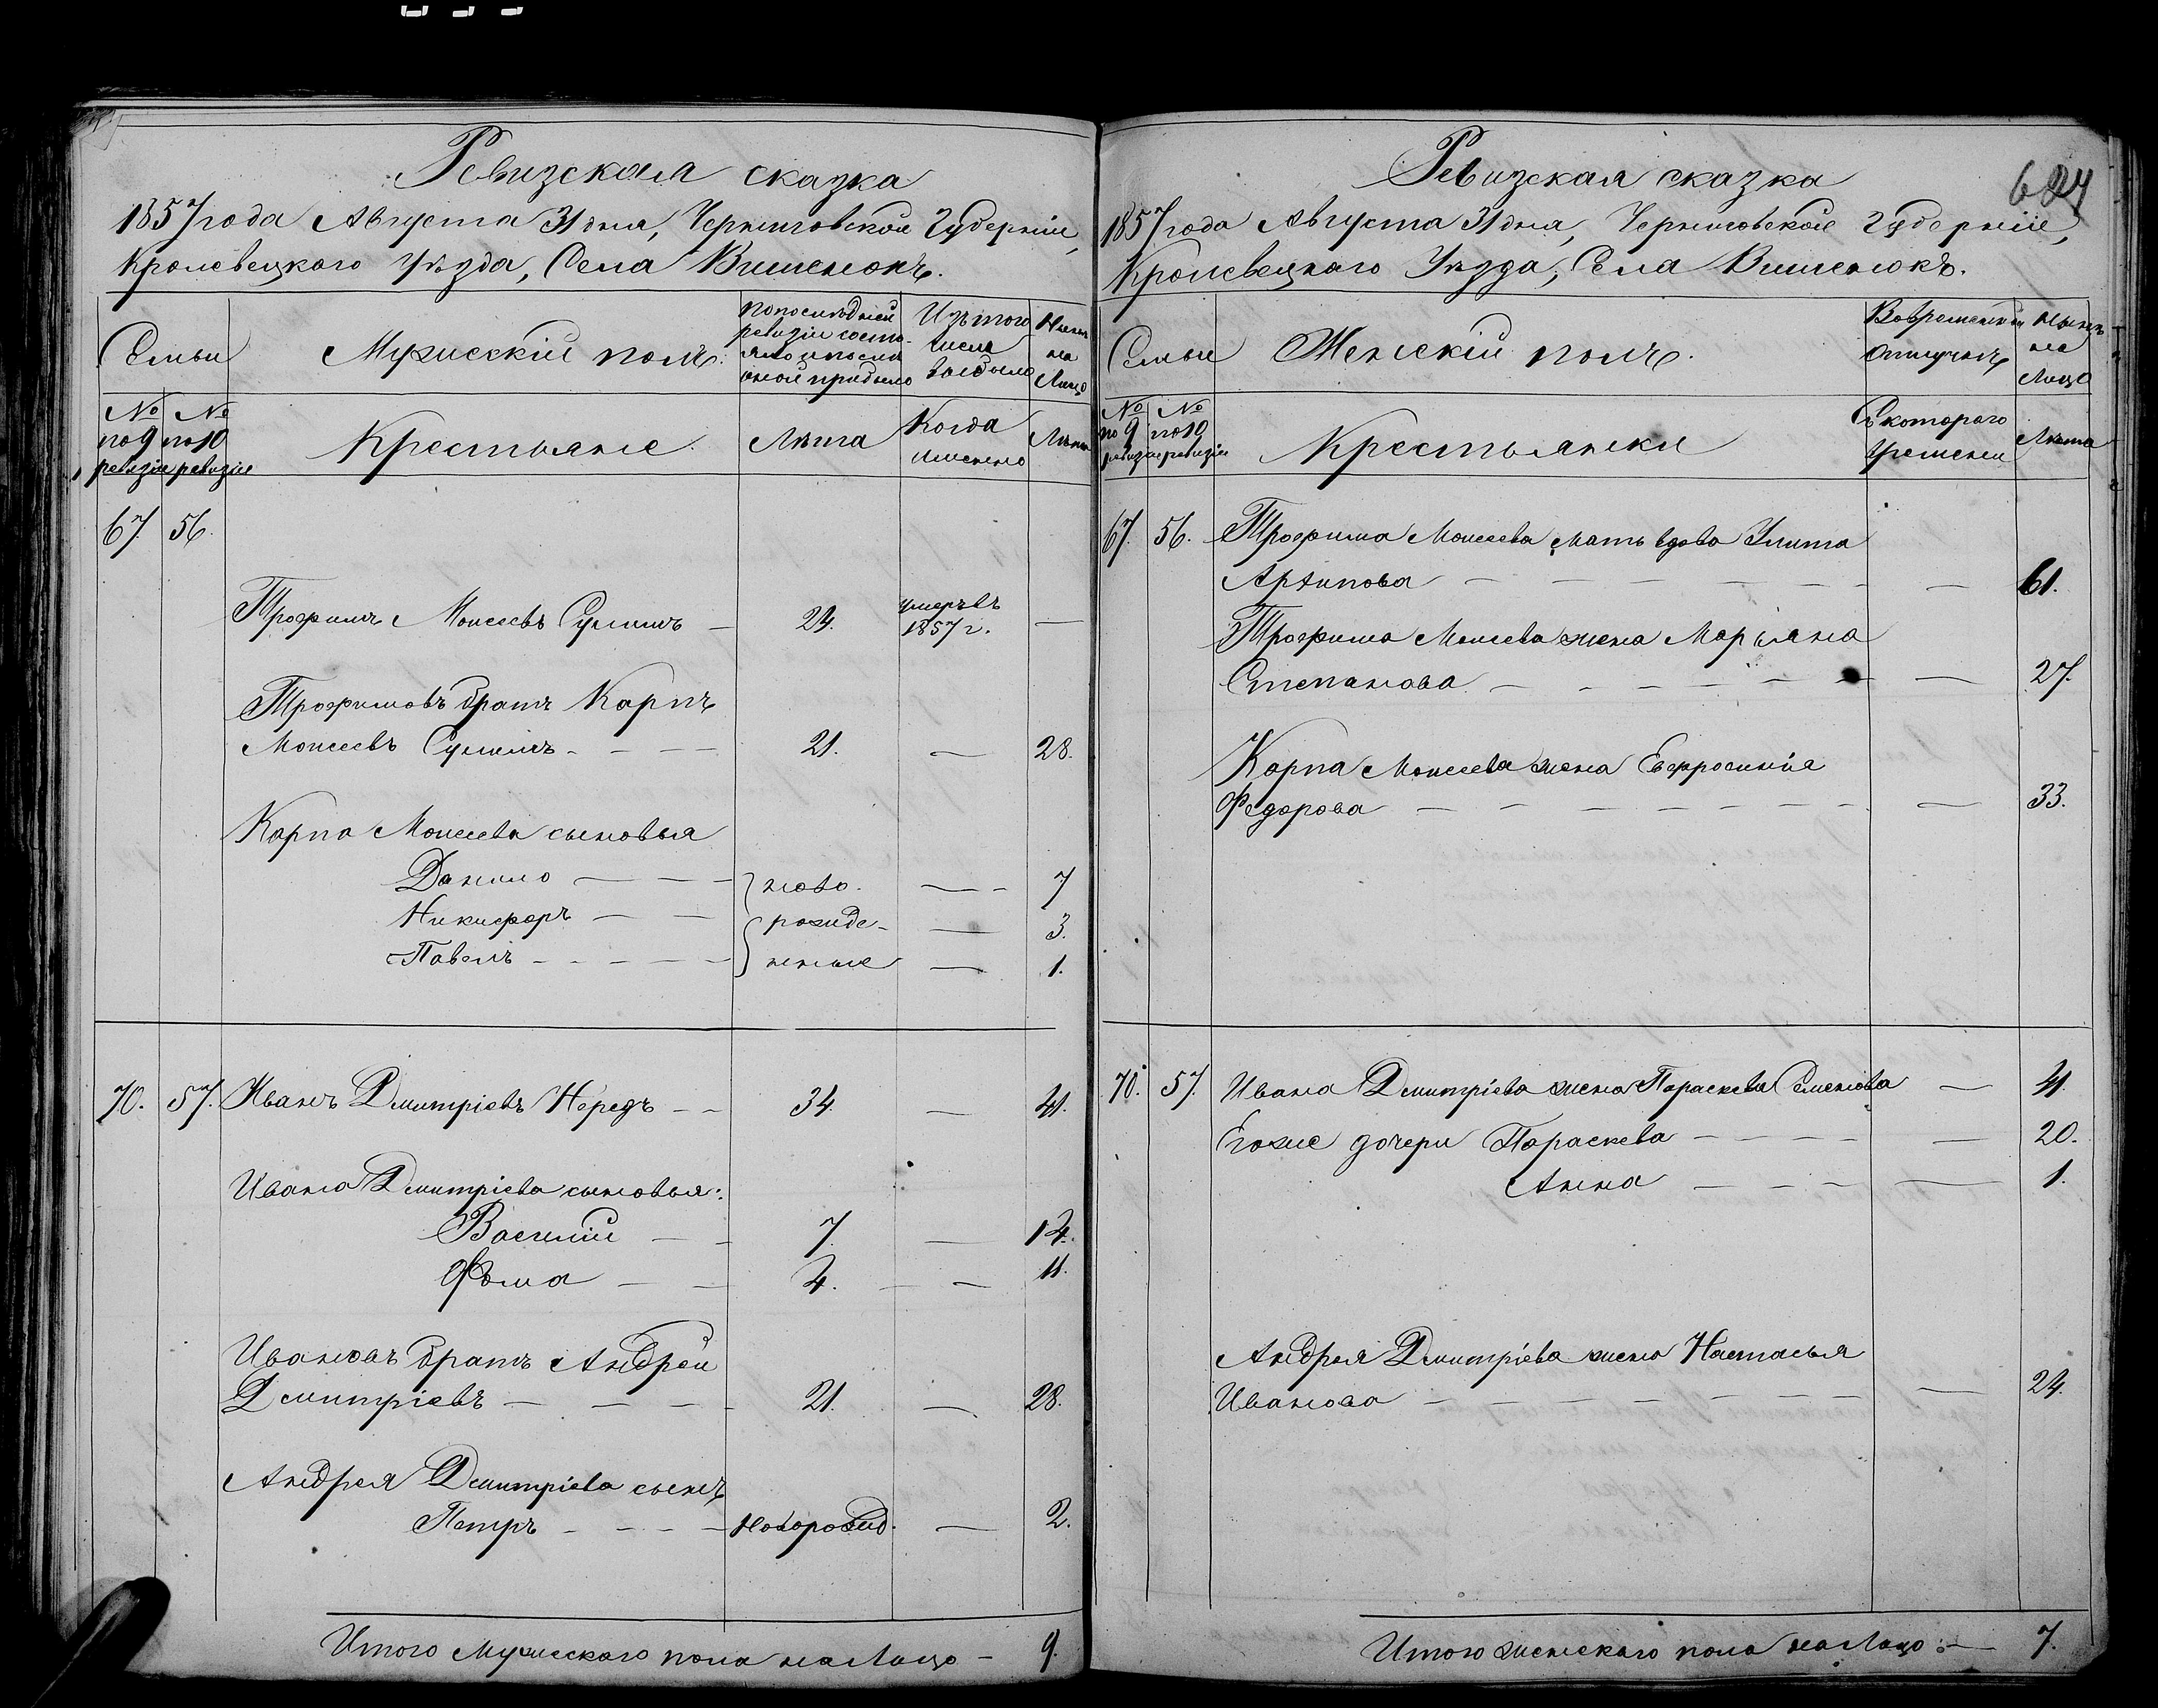 Ревизская сказка
1857 года Августа 31 дня, Черниговской Губерніи,
Кролевецкого Уѣзда, Села Вишенокъ.
Семьи
Мужескій полъ.
По последней ревизіи состояло и после оной прибыло
Изъ того числа выбыло
Ныне на Лицо
№ по 9 ревизіи
№ по 10 ревизіи
Крестьяне.
Лѣта
Когда именно
Лѣта
67. 56.
Трофимъ Моисеевъ Сулимъ — 24. умеръ въ 1857 г. —
Трофимовъ братъ Карпъ
Моисеевъ Сулимъ - - - - 21. — 28.
Карпа Моисеева сыновья
Данило — — — ново- — - 7
Никифоръ — — рожде- — 3.
Павелъ - - - - - нные — 1.
70. 57. Иванъ Дмитріевъ Нередъ - - 34. — 41.
Ивана Дмитріева сыновья:
Василій — - 7. — 14.
Фома — — 4. — 11.
Ивановъ братъ Андрей
Дмитріевъ — - — - - 21. — 28.
Андрея Дмитріева сынъ
Петръ - - - - Новорожд. — 2.
Итого Мужескаго пола на Лицо — 9.
Ревизская сказка
1857 года Августа 31 дня, Черниговской Губерніи,
Кролевецкаго Уѣзда, Села Вишенокъ.
Семьи
Женскій полъ.
Во временной отлучкѣ
Нынѣ на Лицо
№ по 9 ревизіи
№ по 10 ревизіи
Крестьянки
Съ котораго времени
Лѣта
67. 56. Трофима Моисеева мать вдова Улита
Архипова — — — — — — — — 61.
Трофима Моисеева жена Марьяна
Степанова. — - - — - — — — 27.
Карпа Моисеева жена Евфросинія
Федорова — - - — — — - - — 33.
70. 57. Ивана Дмитріева жена Параскева Семенова — 41.
Егоже дочери Параскева — - - - — — 20.
Анна — - — - — 1.
Андрея Дмитріева жена Настасья
Иванова — — - - — — - - — 24.
Итого женскаго пола на Лицо: — 7.